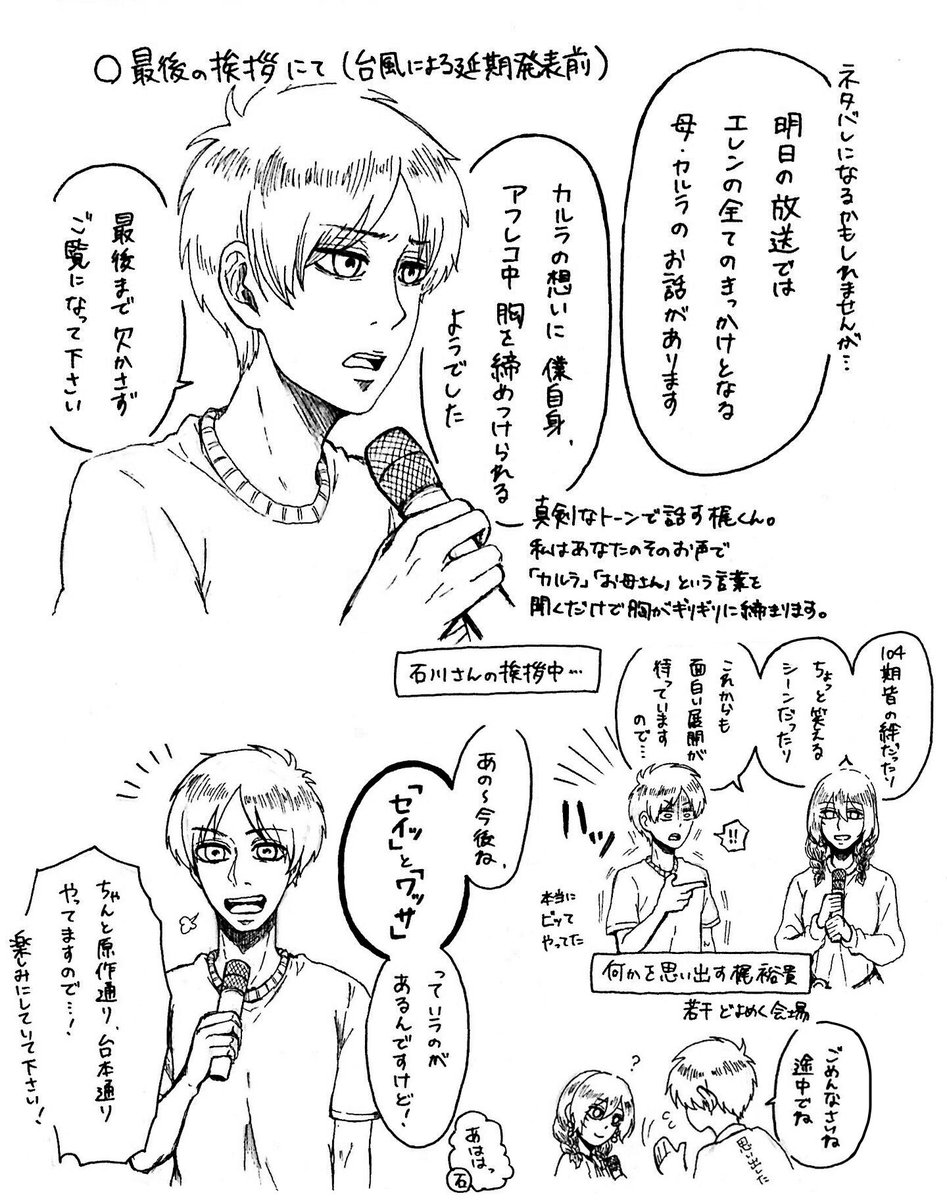 ○最後の挨拶にて(台風による延期発表前)
ネタバレになるかもしれませんが…
明日の放送では
エレンの全てのきっかけとなる
母・カルラのお話があります
カルラの想いに僕自身、
アフレコ中 胸を締めつけられる
ようでした
最後まで欠かさず
ご覧になって下さい
真剣なトーンで話す梶くん。
私はあなたのそのお声で
「カルラ」「お母さん」という言葉を
聞くだけで胸がギリギリに締まります。
石川さんの挨拶中…
104期皆の絆だったり
ちょっと笑える
シーンだったり
これからも
面白い展開が
待っています
ので…
!!
ハッ
本当に
ビッて
やってた
何かを思い出す梶裕貴
若干どよめく会場
ごめんなさいね
途中でね
?
思い出した
あの〜今後ね、
「セイッ」と「ワッサ」
っていうのが
あるんですけど!
ちゃんと原作通り、台本通り
やってますので…!
楽しみにしていて下さい!
あははっ
石